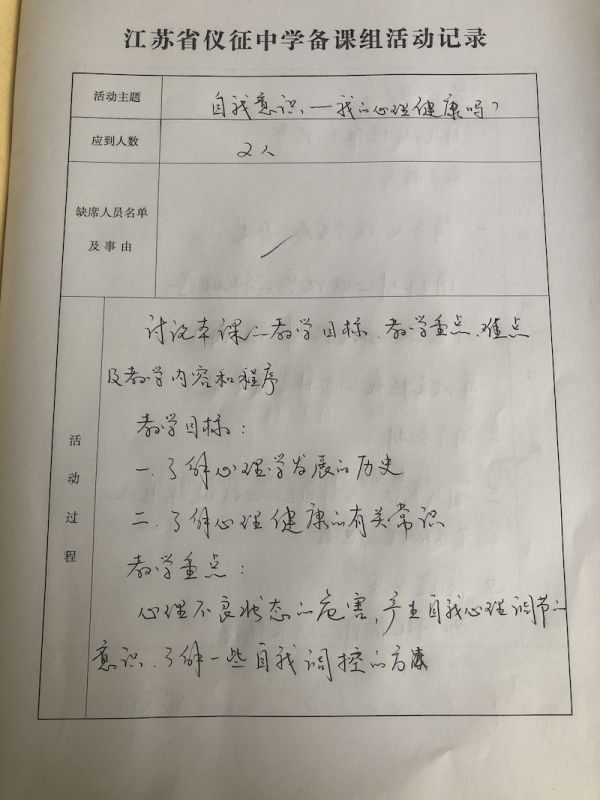 江苏省仪征中学备课组活动记录
活动主题
自我意识—我的心理健康吗？
应到人数
2人
缺席人员名单
及事由
/
活动过程
讨论本课的教学目标、教学重点、难点
及教学内容和程序
教学目标：
一.了解心理学发展的历史
二.了解心理健康的有关常识
教学重点：
心理不良状态的危害，产生自我心理调节的
意识.了解一些自我调控的方法